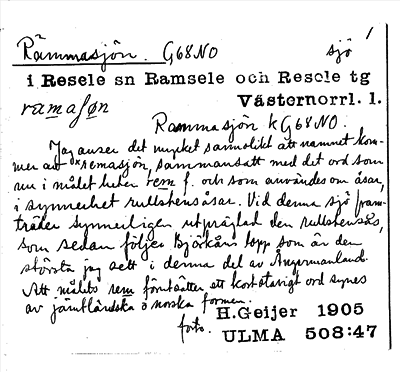 Rämmasjön. G68NO sjö 1
i Resele sn Ramsele och Resele tg
Västernorrl. l.
Rammasjön k G68NO.
Jag anser det mycket sannolikt att namnet kom-
mer av remasjön, sammansatt med det ord som
nu i målet heter rem f. och som användes om åsar,
i synnerhet rullstensåsar. Vid denna sjö fram-
träder synnerligen utpräglad den rullstensås,
som sedan följer Björkån upp som är den
största jag sett i denna del av Ångermanland.
Att målets rem förutsätter ett kortstavigt ord synes
av jämtländska o norska former.
H.Geijer 1905
foto.
ULMA 508:47